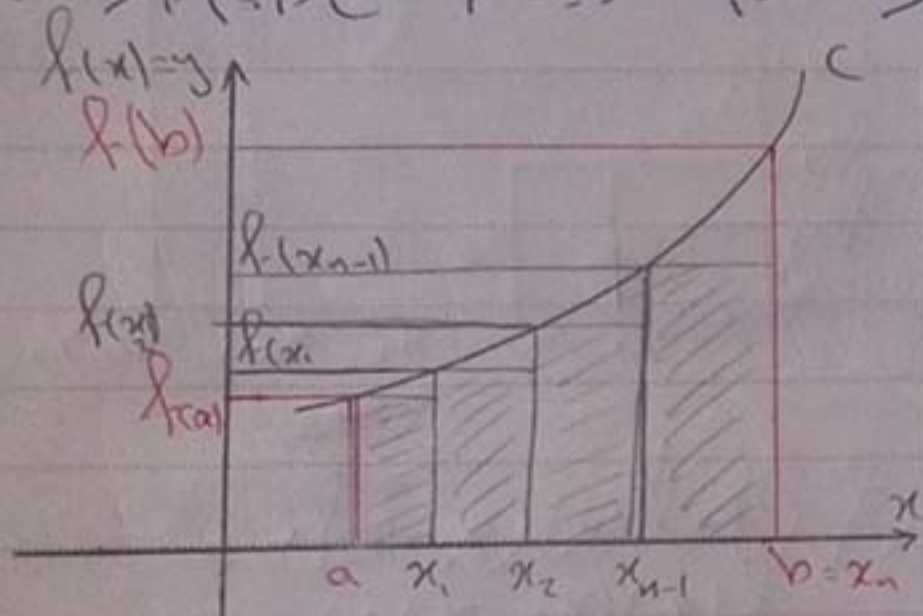 f(x)=y
C
f(b)
f(xn-1)
f(x2)
f(x1
f(a)
x
a x1 x2 xn-1 b=xn